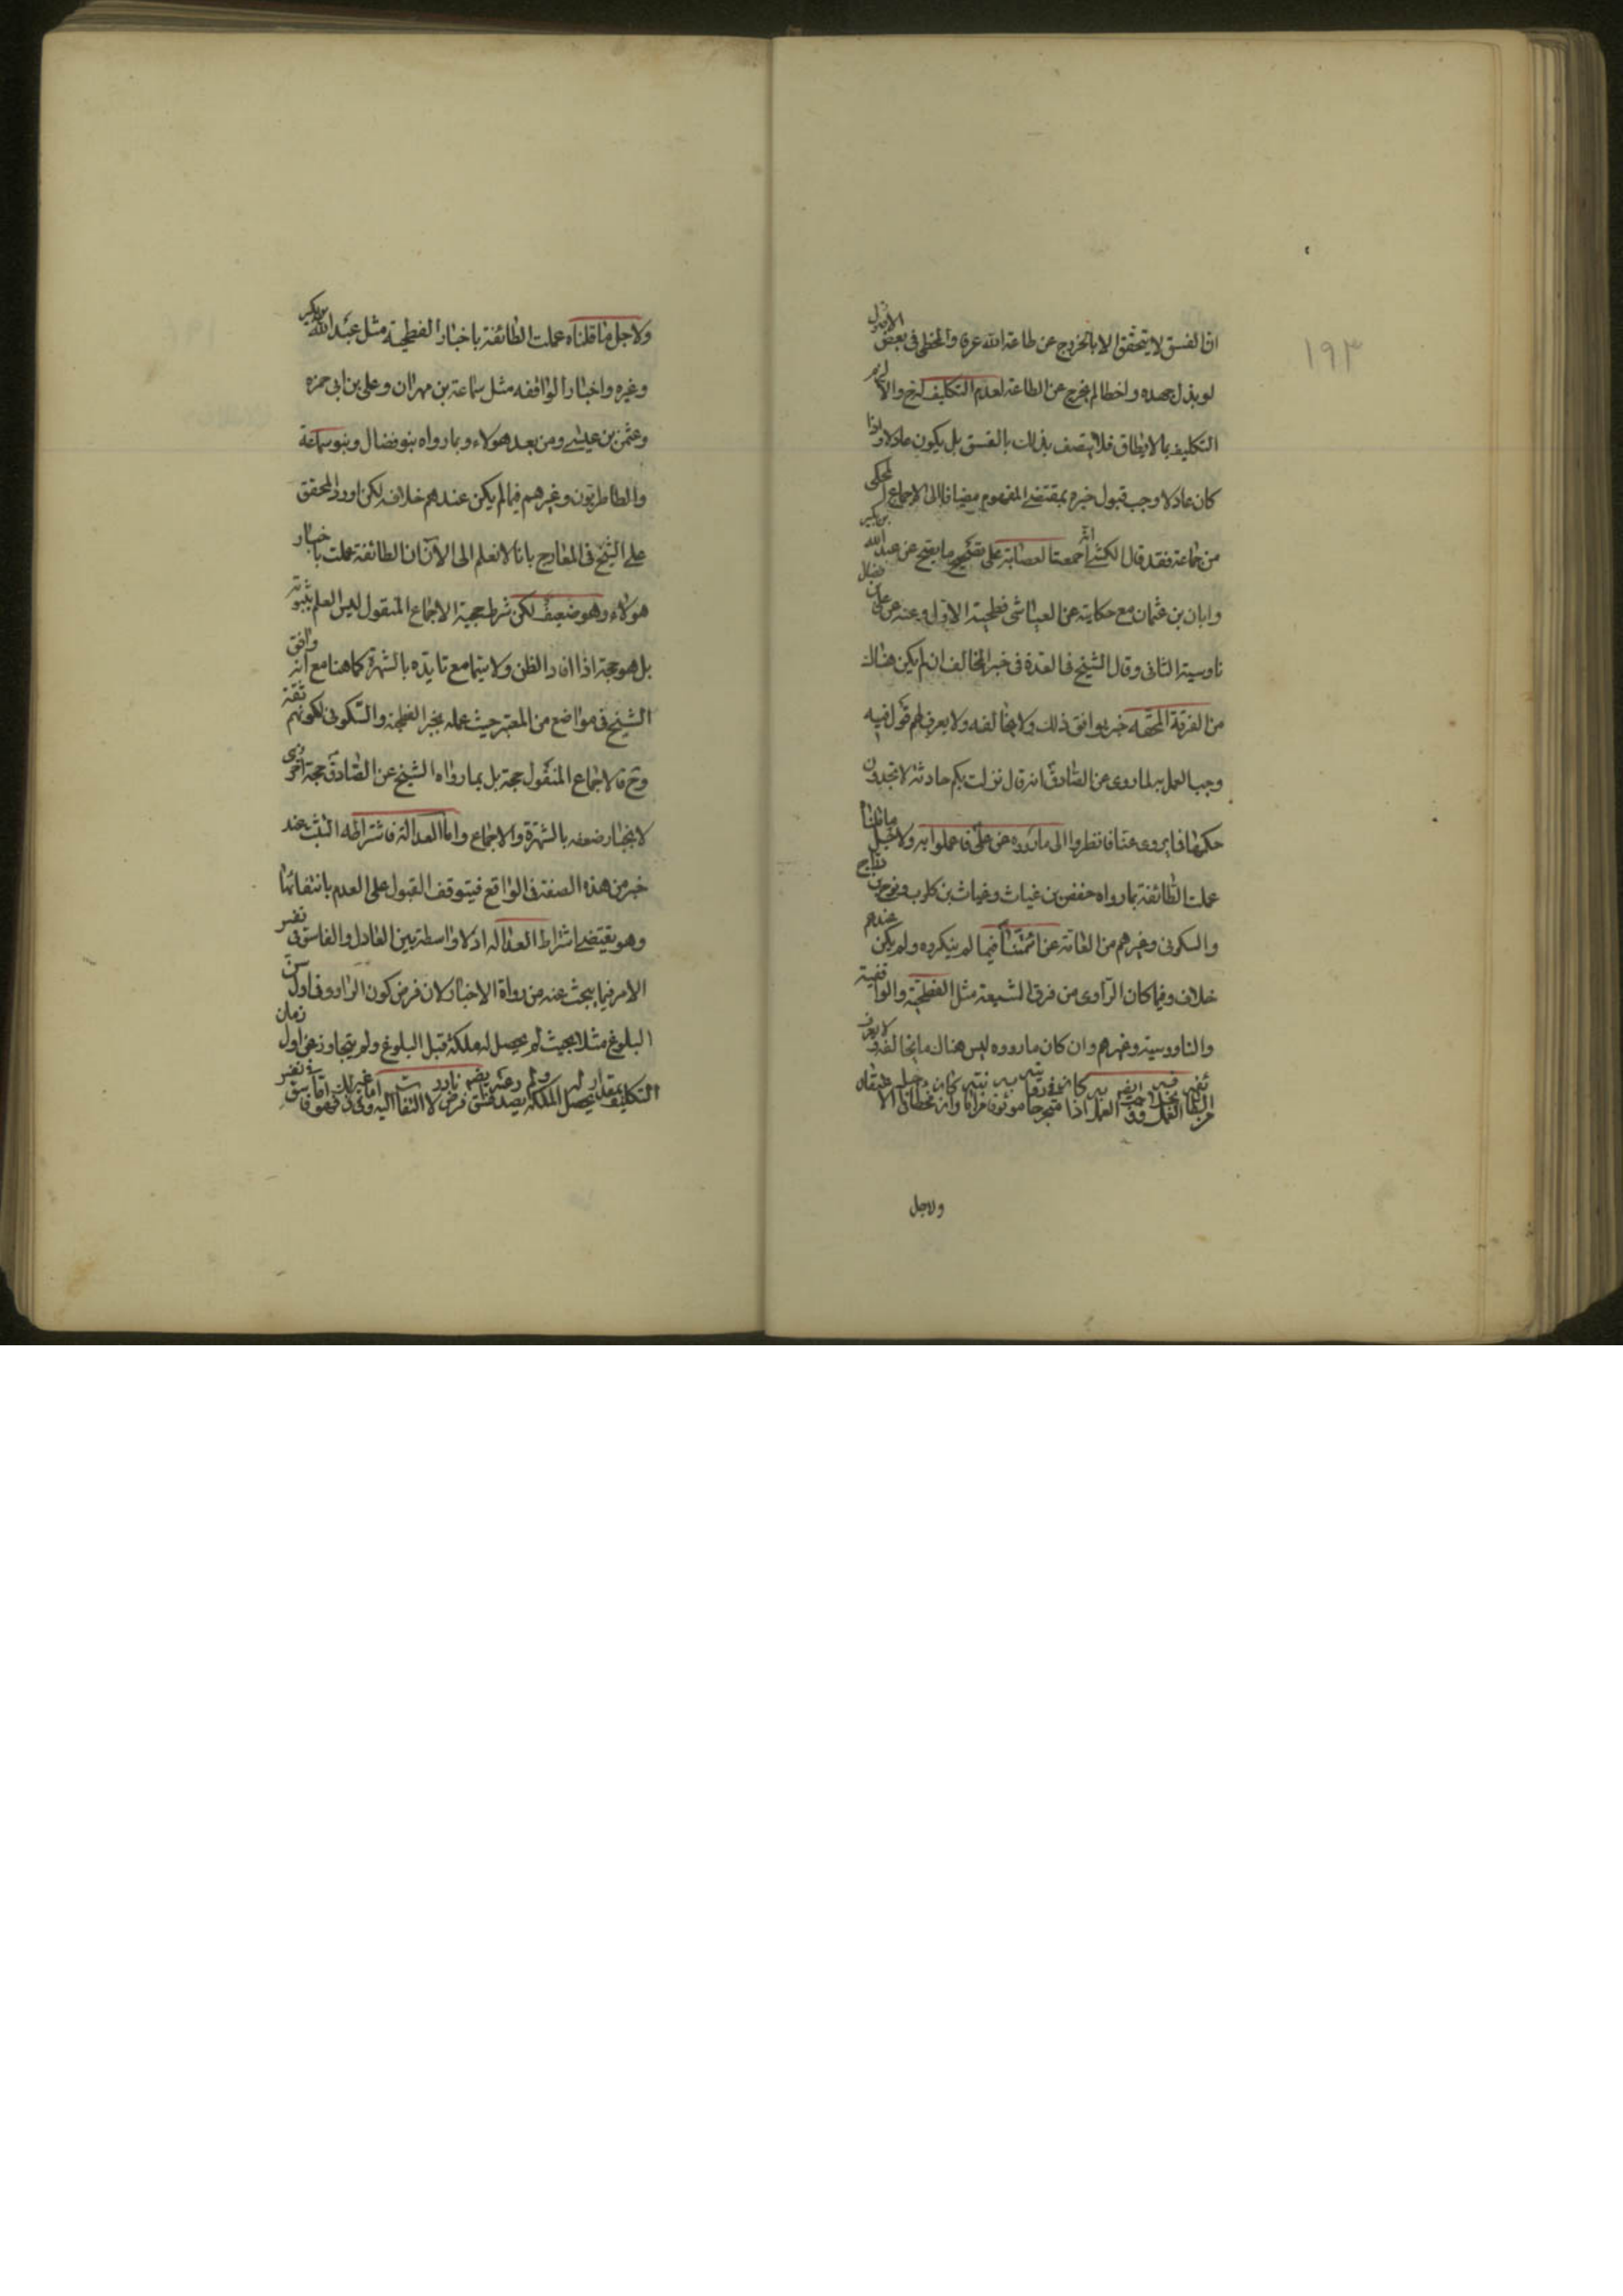 ١٩٣
ان الفسق لا يتحقق الا بالخروج عن طاعة الله عرفا والمخطى فى بعض الاصول
لو بذل جهده واخطا لم يخرج عن الطاعة لعدم التكليف له ح والا لزم
التكليف بما لا يطاق فلا يتصف بذلك بالفسق بل يكون عادلا واذا
كان عادلا وجب قبول خبره بمقتضى المفهوم مضافا الى الاجماع المحكى
من جماعة فقد قال الكشى اجمعت العصابة على تصحيح ما يصح عن عبد الله بن بكير
وابان بن عثمان مع حكايته عن العياشى فطحية الاول وعنه عن على بن فضال
ناوسية الثانى وقال الشيخ فى العدة فى خبر المخالف ان لم يكن هناك
من الفرقة المحقه خبر يوافق ذلك ولا يخالفه ولا يعرف لهم قول فيه
وجب العمل به لما روى عن الصادق انه قال نزلت بكم حادثة لا تجدون
حكمها فيما يروى عنا فانظروا الى ما رووه عن على فاعملوا به ولاجل ما قلنا
عملت الطائفة بما رواه حفص بن غياث وغياث بن كلوب ونوح بن دراج
والسكونى وغيرهم من العامة عن ائمتنا فيما لم ينكروه ولم يكن عندهم
خلافه وفيما كان الراوى من فرق الشيعة مثل الفطحية والواقفية
والناووسية وغيرهم وان كان ما رووه ليس هناك ما يخالفه ولا يعرف
من الطائفة العمل بخلافه وجب ايضا العمل به اذا كان متحرجا فى روايته موثوقا به فى امانته وان كان مخطئا فى اصل الاعتقاد
ولاجل
ولاجل ما قلناه عملت الطائفة باخبار الفطحية مثل عبد الله بن بكير
وغيره واخبار الواقفه مثل سماعة بن مهران وعلى بن ابى حمزه
وعثمن بن عيسى ومن بعد هولاء وبما رواه بنو فضال وبنو سماعة
والطاطريون وغيرهم فيما لم يكن عندهم خلافه لكن اورد المحقق
على الشيخ فى المعارج بانا لا نعلم الى الان ان الطائفة عملت باخبار
هولاء وهو ضعيف لكن شرط حجية الاجماع المنقول ليس العلم بثبوته
بل هو حجة اذا افاد الظن ولا سيما مع تايده بالشهرة كما هنا مع انه وافق
الشيخ فى مواضع من المعتبر حيث عمله بخبر الفطحية والسكونى لكونهم ثقة
وح فالاجماع المنقول حجة بل بما رواه الشيخ عن الصادق حجة اخرى
لانجبار ضعفه بالشهرة والاجماع واما العدالة فاشتراطه التثبت عند
خبر من هذه الصفة فى الواقع فيتوقف القبول على العدم بانتفائها
وهو يقتضى اشتراط العدالة اذ لا واسطة بين العادل والفاسق فى نفس
الامر فيما يبحث عنه من رواة الاخبار لان فرض كون الراوى فى اول سن
البلوغ مثلا بحيث لم يحصل له ملكة قبل البلوغ ولم يتجاوز عن اول زمان
التكليف بمقدار يحصل له الملكة ولم يصدر عنه فسق ايضا فرض نادر لا التفات اليه واما فى غير ذلك فهو اما فاسق فى نفس